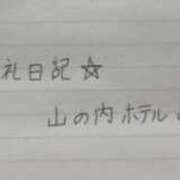 礼日記☆
山の内ホテル